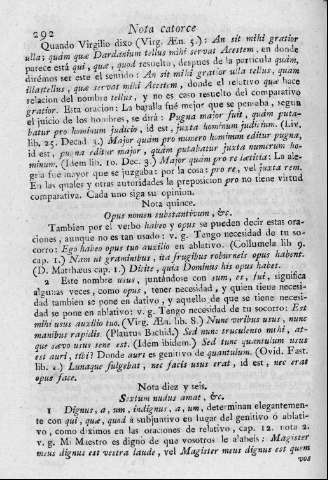 292 Nota catorce
Quando Virgilio dixo (Virg. Æn. 5.): An sit mihi gratior
ulla; quàm quæ Dardanium tellus mihi servat Acestem, en donde
parece está qui, quæ, quod resuelto, despues de la particula quàm,
dirémos ser este el sentido: An sit mihi gratior ulla tellus, quàm
illa tellus, quæ servat mihi Acestem, donde el relativo quæ hace
relacion del nombre tellus, y no es caso resulto del comparativo
gratior. Esta oracion: La batalla fué mejor que se pensaba, segun
el juicio de los hombres, se dirá: Pugna major fuit, quàm puta-
batur pro hominum judicio, id est, juxta hominum judicium. (Liv.
lib. 25. Decad 3.) Major quàm pro numero hominum editur pugna,
id est, pugna editur major, quàm putabatur juxta numerum ho-
minum. (Idem lib. 10. Dec. 3.) Major quàm pro re lætitia: La ale-
gria fué mayor que se juzgaba: por la cosa: pro re, vel juxta rem.
En las quales y otras autoridades la preposicion pro no tiene virtud
comparativa. Cada uno siga su opinion.
Nota quince.
Opus nomen substantivum, &c.
Tambien por el verbo habeo y opus se pueden decir estas ora-
ciones, aunque no es tan usado: v. g. Tengo necesidad de tu so-
corro: Ego habeo opus tuo auxilio en ablativo. (Collumela lib 9.
cap. 1.) Nam ut graminibus, ita frugibus roburneis opus habent.
(D. Matthæus cap. 1.) Dicite, quia Dominus his opus habet.
2 Este nombre usus, juntándole con sum, es, fui, significa
algunas veces, como opus, tener necesidad, y quien tiene necesi-
dad tambien se pone en dativo, y aquello de que se tiene necesi-
dad se pone en ablativo: v. g. Tengo necesidad de tu socorro: Est
mihi usus auxilio tuo. (Virg. Æn. lib. 8.) Nunc viribus usus, nunc
manibus rapidis. (Plautus Bachid.) Sed nunc truculento mihi, at-
que sævo usus sene est. (Idem ibidem.) Sed tunc quantulum usus
est auri, tibi? Donde auri es genitivo de quantulum. (Ovid. Fast.
lib. 1.) Lunaque fulgebat, nec facis usus erat, id est, nec erat
opus face.
Nota diez y seis.
Sextum nudus amat, &c.
1 Dignus, a, um, indignus, a, um, determinan elegantemen-
te con qui, quæ, quod á subjuntivo en lugar del genitivo ó ablati-
vo, como diximos en las oraciones de relativo, cap. 12. nota 2.
v. g. Mi Maestro es digno de que vosotros le alabeis: Magister
meus dignus est vestra laude, vel Magister meus dignus est quem
vos